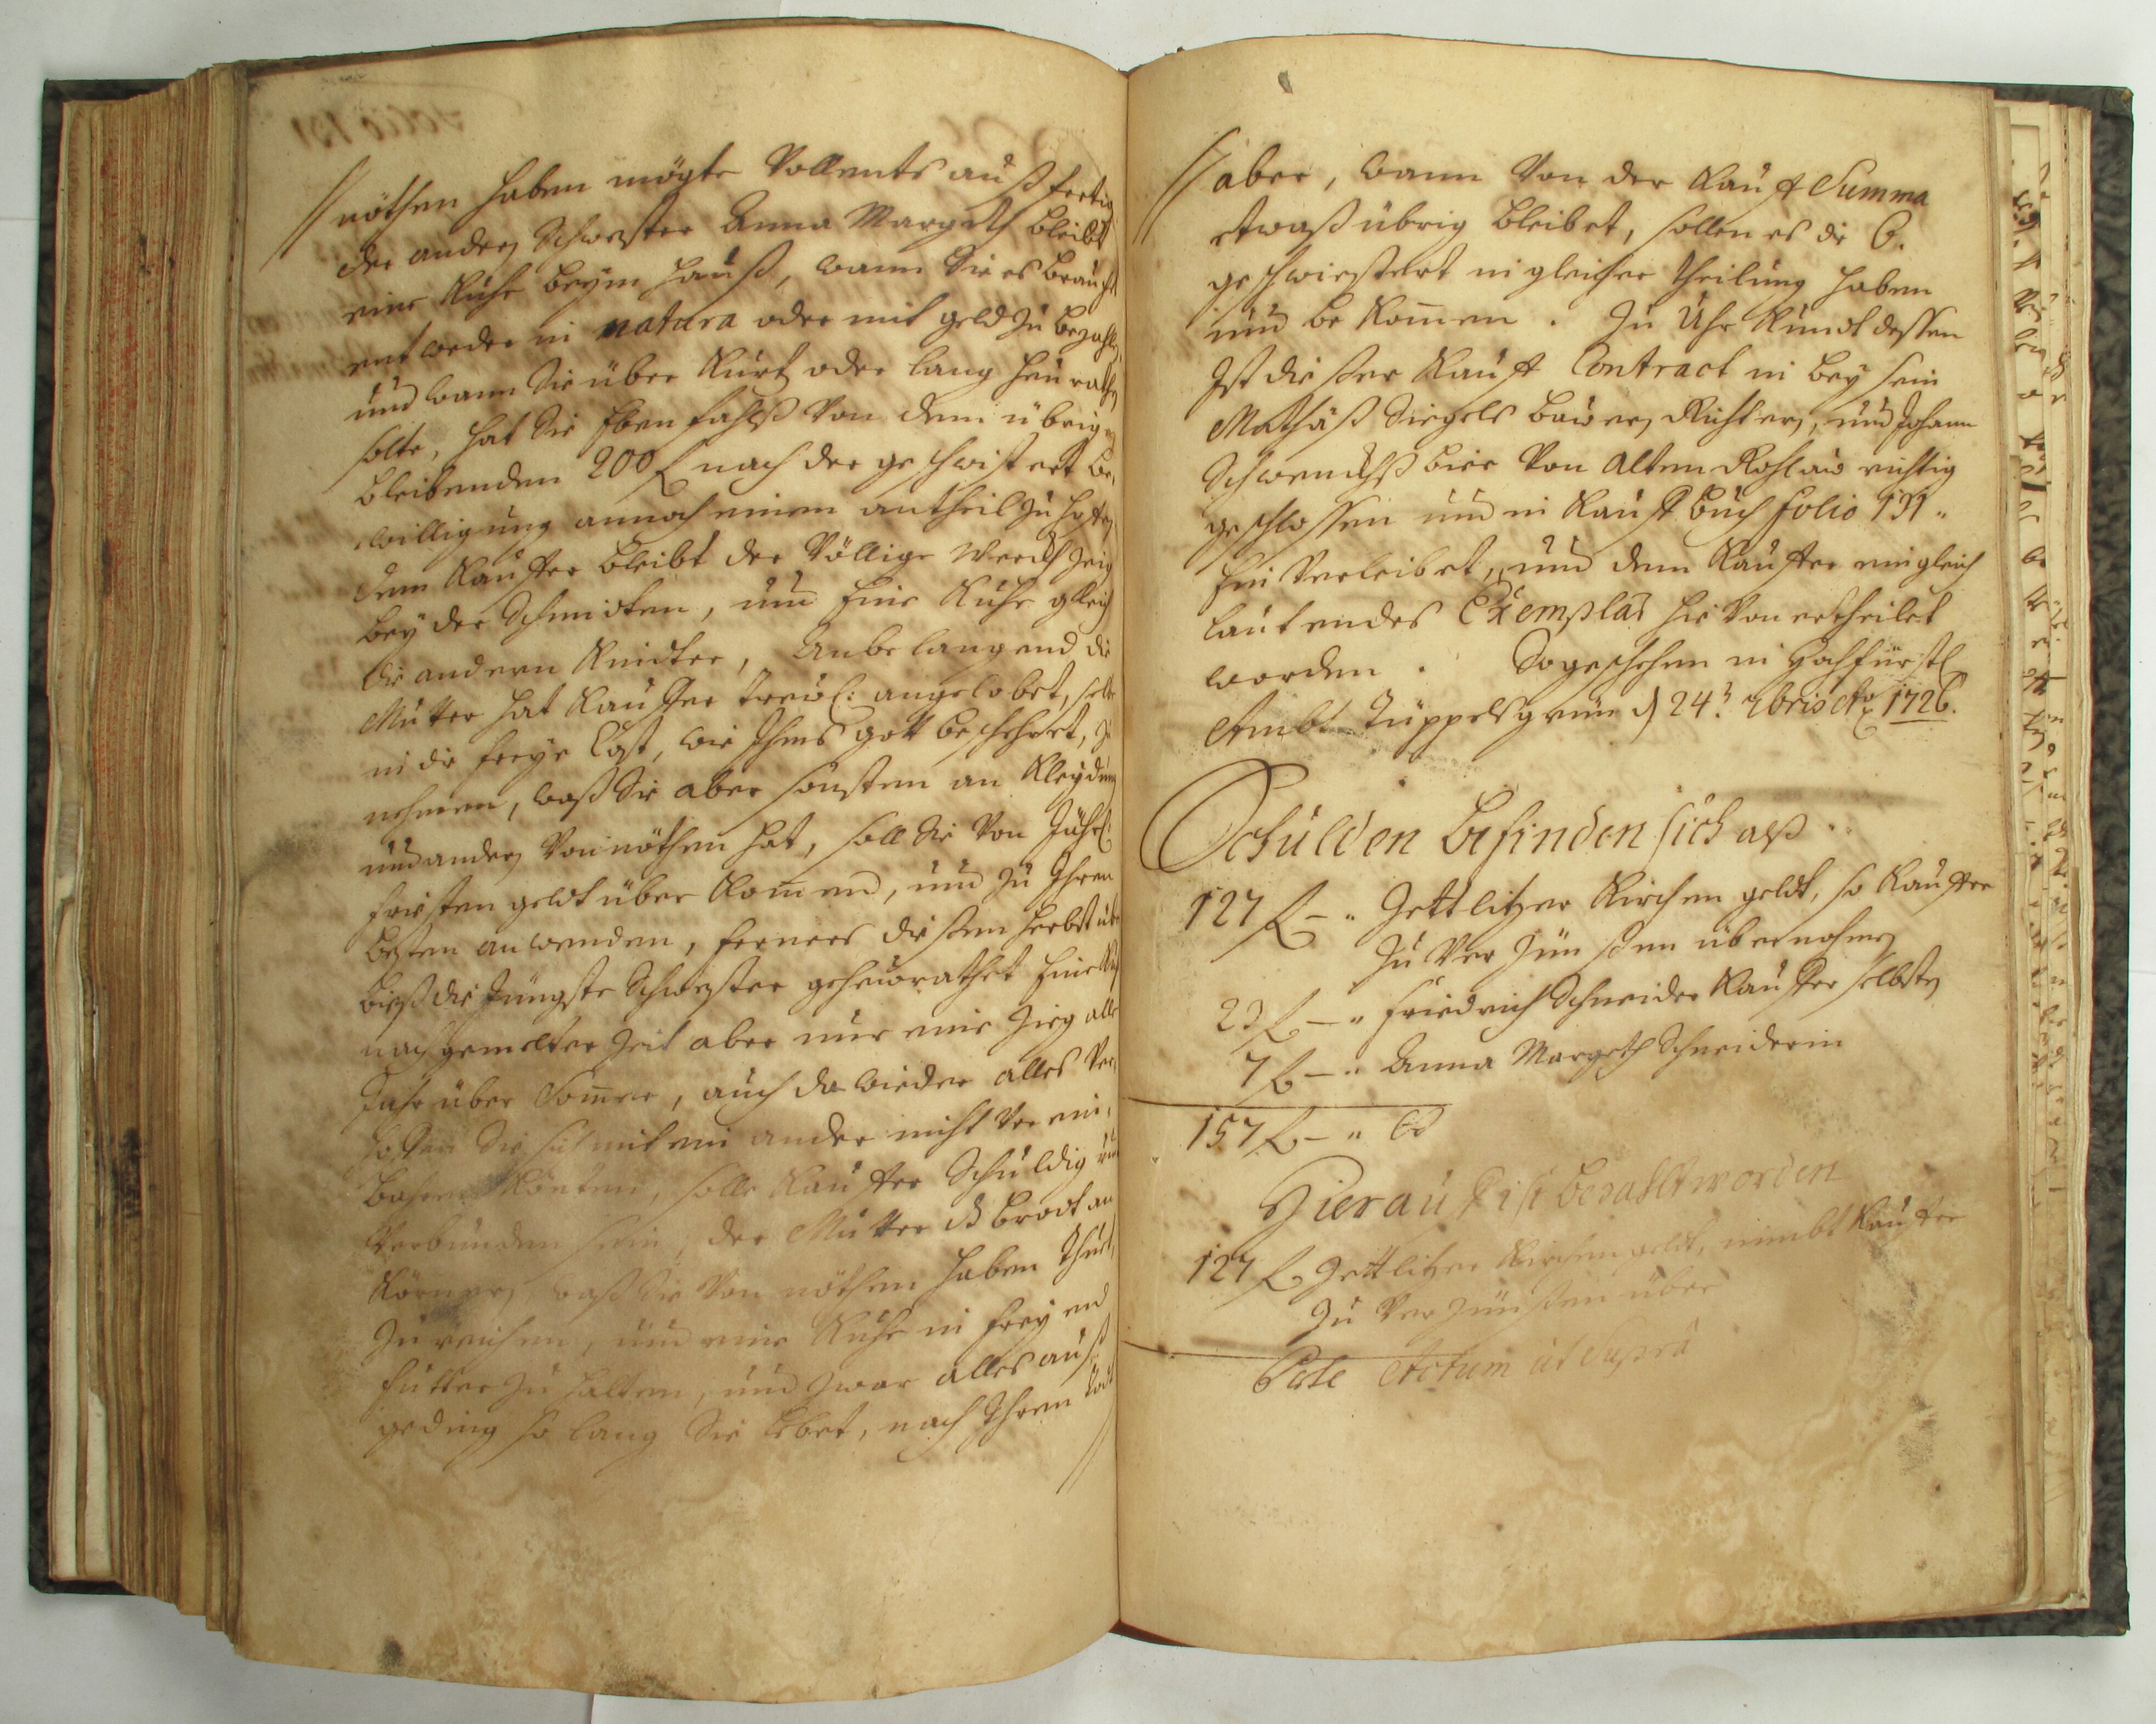 // nöthen haben mögte Vollents außfertig,
der andern Schwester Anna Margeth bleibt
eine Kuhe beym Hauß, wann Sie es braucht
entweder in natura oder mit geld zu bezahlen,
und wann Sie über Kurtz oder lang heurathen
solte, hat Sie Ebenfahlß Von dem übrig
bleibenden 200 f nach der geschwistert be-
willigung annoch einen antheil zu hoffen,
dem Kauffer bleibt der Völlige Werckzeig
bey der Schmidten, und Eine Kuhe gleich
die andern Kinder, Anbelangend die
Mutter hat Kauffer treul: angelobet, solche
in die freye Cost, wie Ihms gott beschehret, zu
nehmen, waß Sie aber sonsten an Kleydung
und andern Von nöthen hat, soll Sie Von Jährl:
fristen geldt über Kom̄en, und zu Ihren
besten anwenden, ferners diesen herbst über
bieß die Jüngste Schwester geheurathet Eine Kuh
nach gemelter Zeit aber nur eine Zieg alle
Jahr über Som̄er, auch da wieder alles Ver-
hoffen Sie sich mit ein ander nicht Verein-
bahren Könten, solle Kauffer Schuldig und
Verbunden sein, der Mutter d Brodt an
Körnern, waß Sie Von nöthen haben thuet,
zu reichen, und eine Kuhe in freyen
futter zu halten, und zwar alles auß
geding so lang Sie lebet, nach Ihrem todt //
// aber, wann Von der Kauff Summa
etwaß übrig bleibet, sollen es die 6.
geschwiestert in gleicher theilung haben
und be Kom̄en. Zu Uhrkundt dessen
Ist dießer Kauff Contract in beysein
Mathäß Siegels bauern Richtern, und Johann
Schwendtß bier Von Alten Rohlau richtig
geschlossen und in Kauff buch folio 131 "
Ein Verleibet, und dem Kauffer ein gleich
lautendes Exemplar hie Von ertheilet
worden. So geschehen in Hochfürstl
Ambt Tüppelsgrün d 24t 7bris Ao 1726.
Schulden befinden sich alß
127 f – " Zettlitzer Kirchen geldt, so Kauffer
zu Verzünßen übernohmen
23 f – " Friedrich Schneider Kauffer selbsten
7 f – " Anna Margeth Schneiderin
157 f – "
Hierauf ist bezahlt worden
127 f Zettlitzer Kirchengeldt, nimbt Kauffer
zu Verzünßen über
Actum ut supra